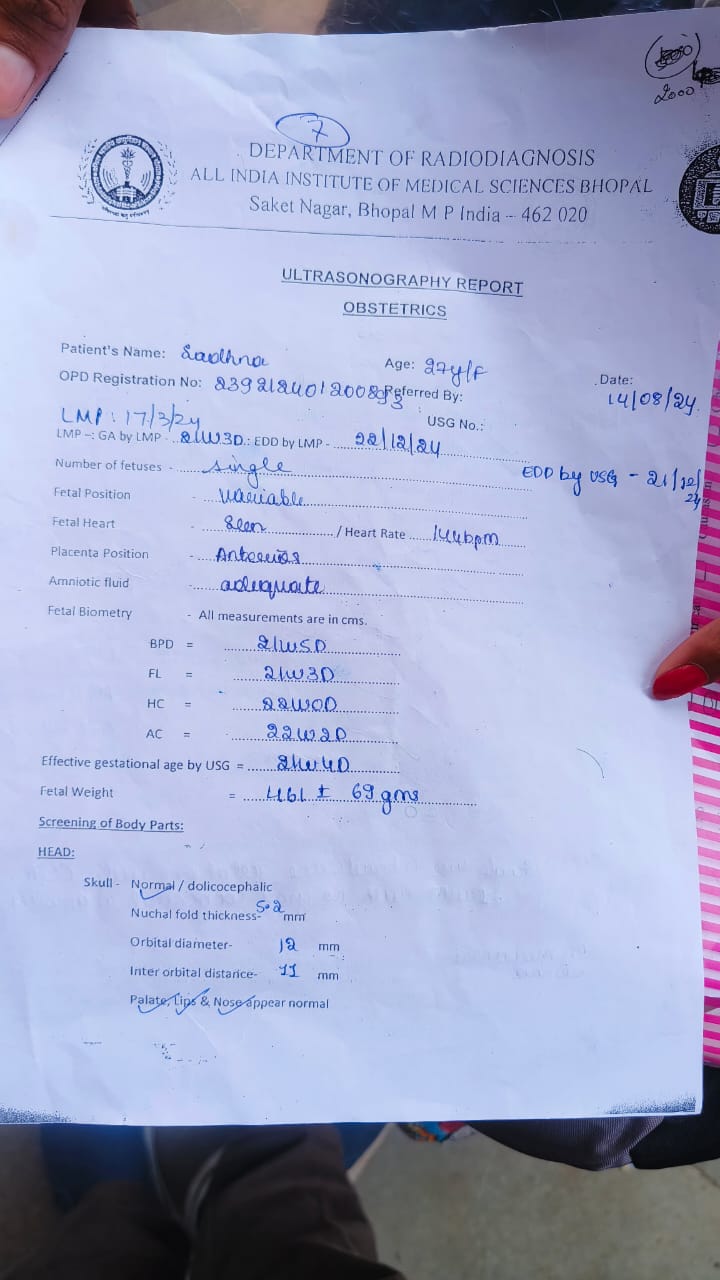 2000
7
DEPARTMENT OF RADIODIAGNOSIS
ALL INDIA INSTITUTE OF MEDICAL SCIENCES BHOPAL
Saket Nagar, Bhopal M P India – 462 020
ULTRASONOGRAPHY REPORT
OBSTETRICS
Patient's Name: Sadhna Age: 27y/F Date: 14/08/24
OPD Registration No: Referred By:
LMP: 17/3/24 USG No.:
LMP –: GA by LMP - 21W3D.: EDD by LMP - 22/12/24
Number of fetuses - single EDD by USG - 21/12/24
Fetal Position - variable
Fetal Heart - Seen / Heart Rate 144bpm
Placenta Position - Anterior
Amniotic fluid - adequate
Fetal Biometry - All measurements are in cms.
BPD = 21W5D
FL = 21W3D
HC = 22W0D
AC = 22W2D
Effective gestational age by USG = 21W4D
Fetal Weight = 461 ± 69 gms
Screening of Body Parts:
HEAD:
Skull - Normal / dolicocephalic
Nuchal fold thickness- 5.2 mm
Orbital diameter- 12 mm
Inter orbital distance- 11 mm
Palate, Lips & Nose appear normal